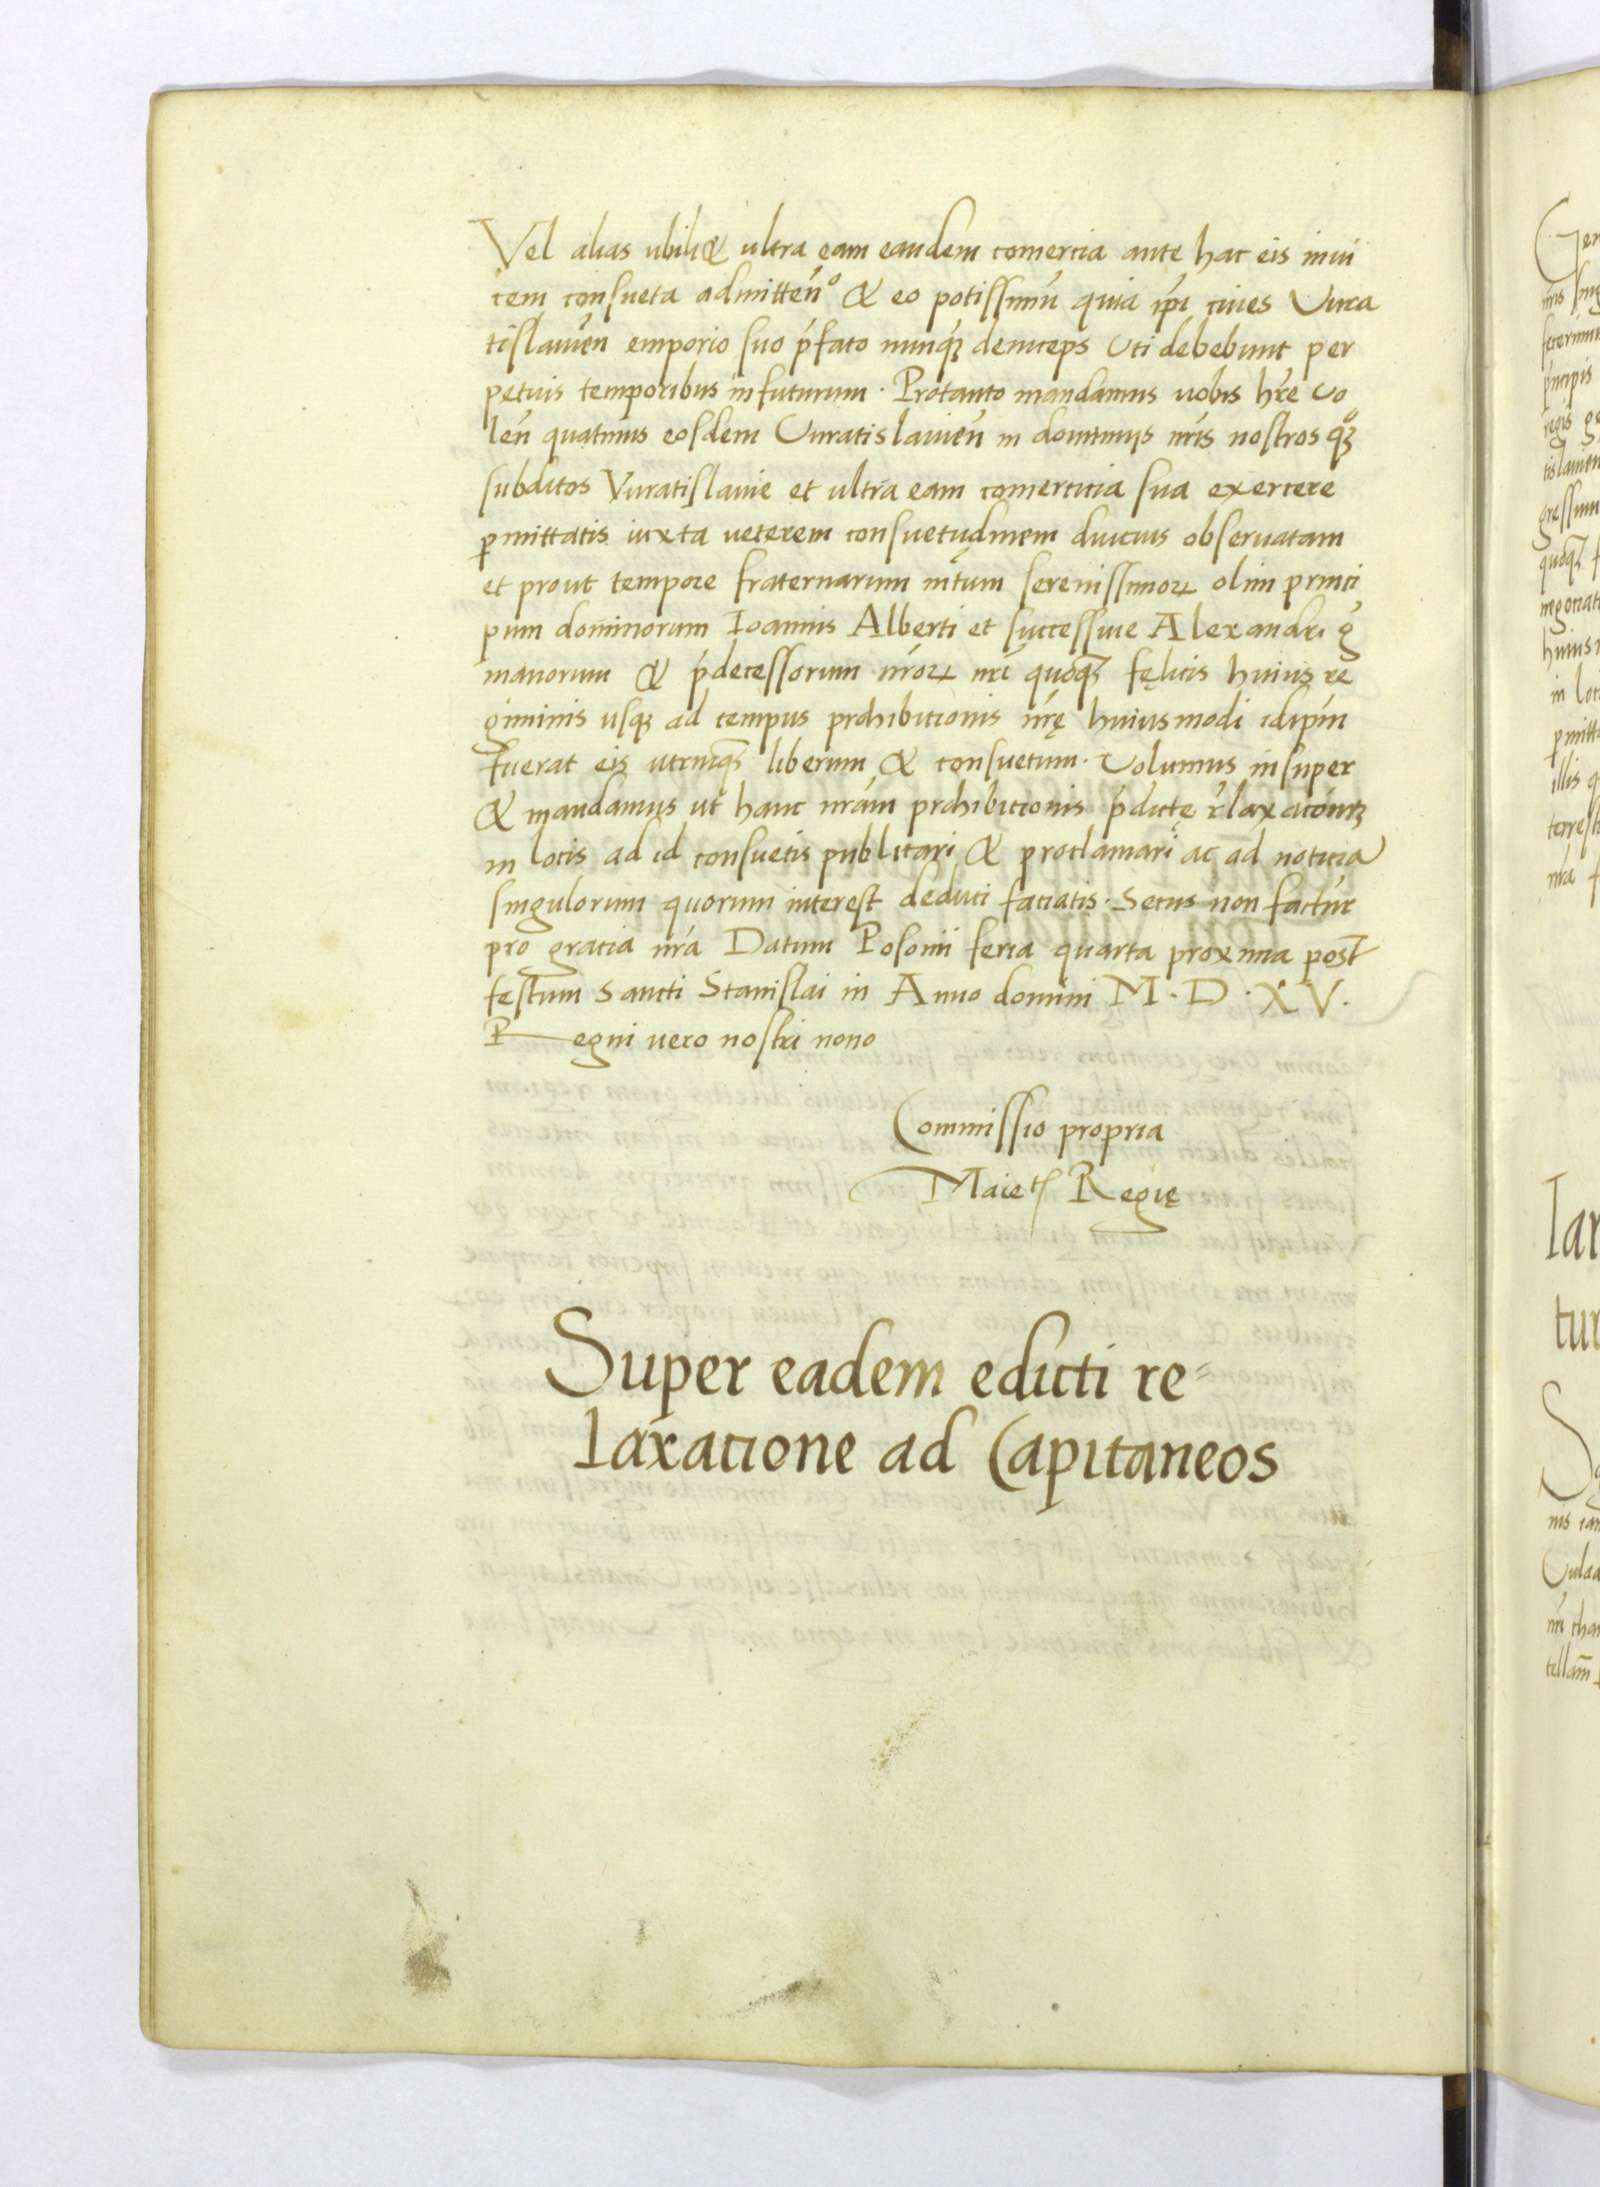 Vel alias ubilibꝫ ultra eam eandem comertia ante hac eis invi
cem consueta admitten̄º & eo potissimū quia ip̄i cives Vura
tislavien̄ emporio suo p̄fato nunqꝫ deinceps Uti debebunt per
petuis temporibus infuturum. Protanto mandamus vobis hr̄e Vo
len̄ quatinus eosdem Vuratislavien̄ in dominiis nr̄is nostrosqꝫ
subditos Vuratislavie et ultra eam comerticia sua exercere
ꝑmittatis iuxta veterem consuetudinem diucius observatam
et prout tempore fraternarum nr̄um serenissimoꝝ olim princi
pum dominorum Ioannis Alberti et successive Alexandri g
manorum & p̄decessorum nr̄oꝝ nr̄i quoqꝫ fęlicis huius re
giminis usqꝫ ad tempus prohibitionis nr̄ę huiusmodi idip̄m
fuerat eis utrinqꝫ liberum & consuetum. Volumus insuper
& mandamus ut hanc nr̄am prohibitionis p̄dictę r̄laxacōnꝫ
in locis ad id consuetis publicari & proclamari ac ad noticiā
singulorum quorum interest deduci faciatis. Secus non factur̄
pro gracia nr̄a Datum Posonii feria quarta proxima post
festum Sancti Stanislai in Anno domini M. D. XV.
Regni vero nostri nono
Commissio propria
Maietꝭ Regię
Super eadem edicti re=
laxatione ad Capitaneos